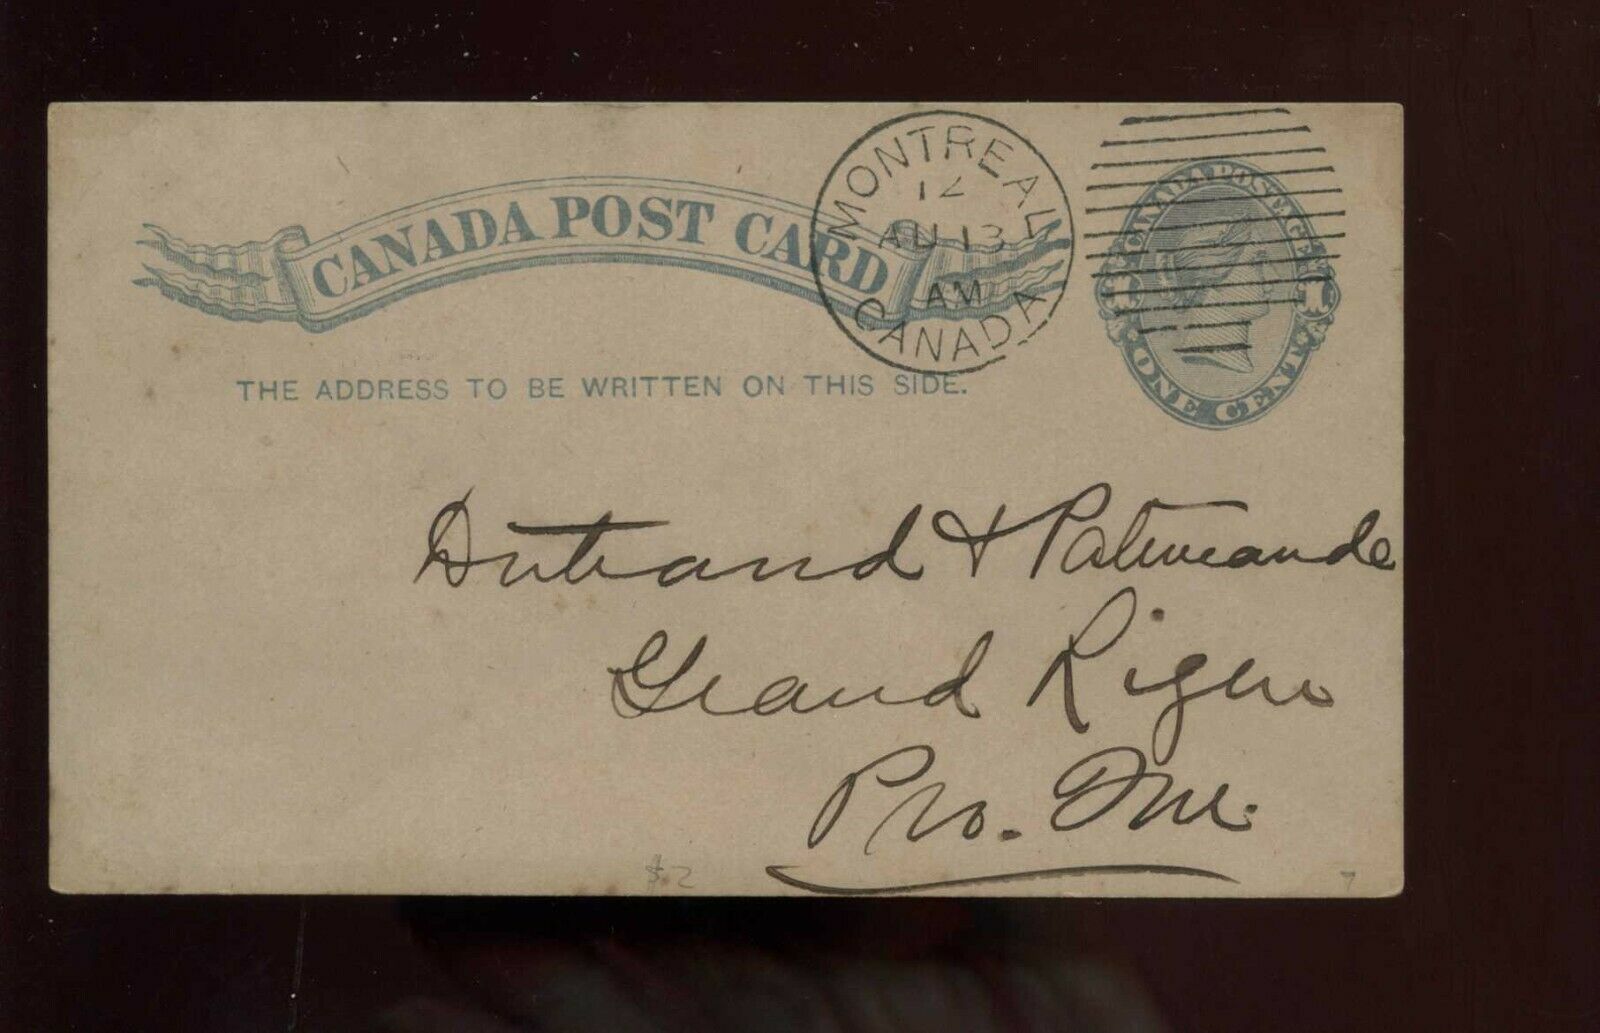 CANADA POST CARD
MONTREAL
12
AU 13
AM
CANADA
CANADA POSTAGE
1 1
ONE CENT
THE ADDRESS TO BE WRITTEN ON THIS SIDE.
Dutrand & Patenaude
Grand Ligne
Pro. Que.
$2
7